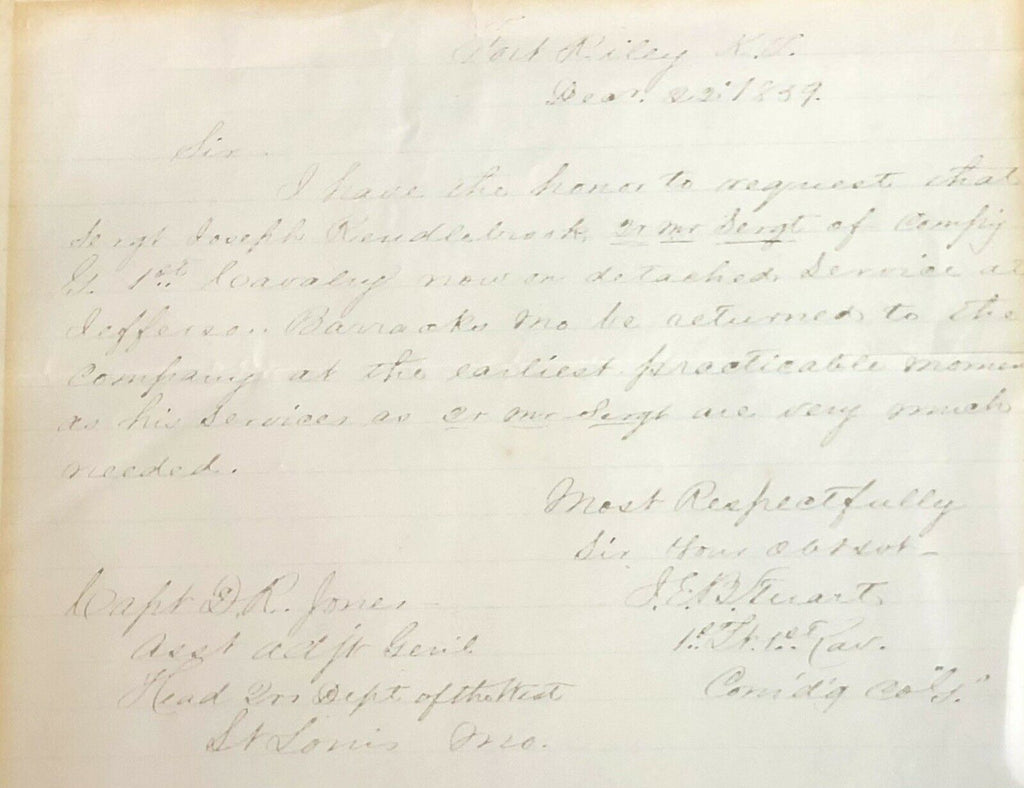 Fort Riley K.T.
Decr. 22d 1859.
Sir
I have the honor to request that
Sergt Joseph Kendlebrook, Qr Mr Sergt of Comp'y
G. 1st Cavalry now on detached service at
Jefferson Barracks Mo be returned to the
company at the earliest practicable momen
as his services as Qr Mr Sergt are very much
needed.
Most Respectfully
Sir Your Obt Svt
J.E.B. Stuart
1st Lt. 1st Cav.
Com'd'g Co "G."
Capt D. R. Jones
Asst Adjt Genl.
Head Qrs Dept of the West
St Louis Mo.